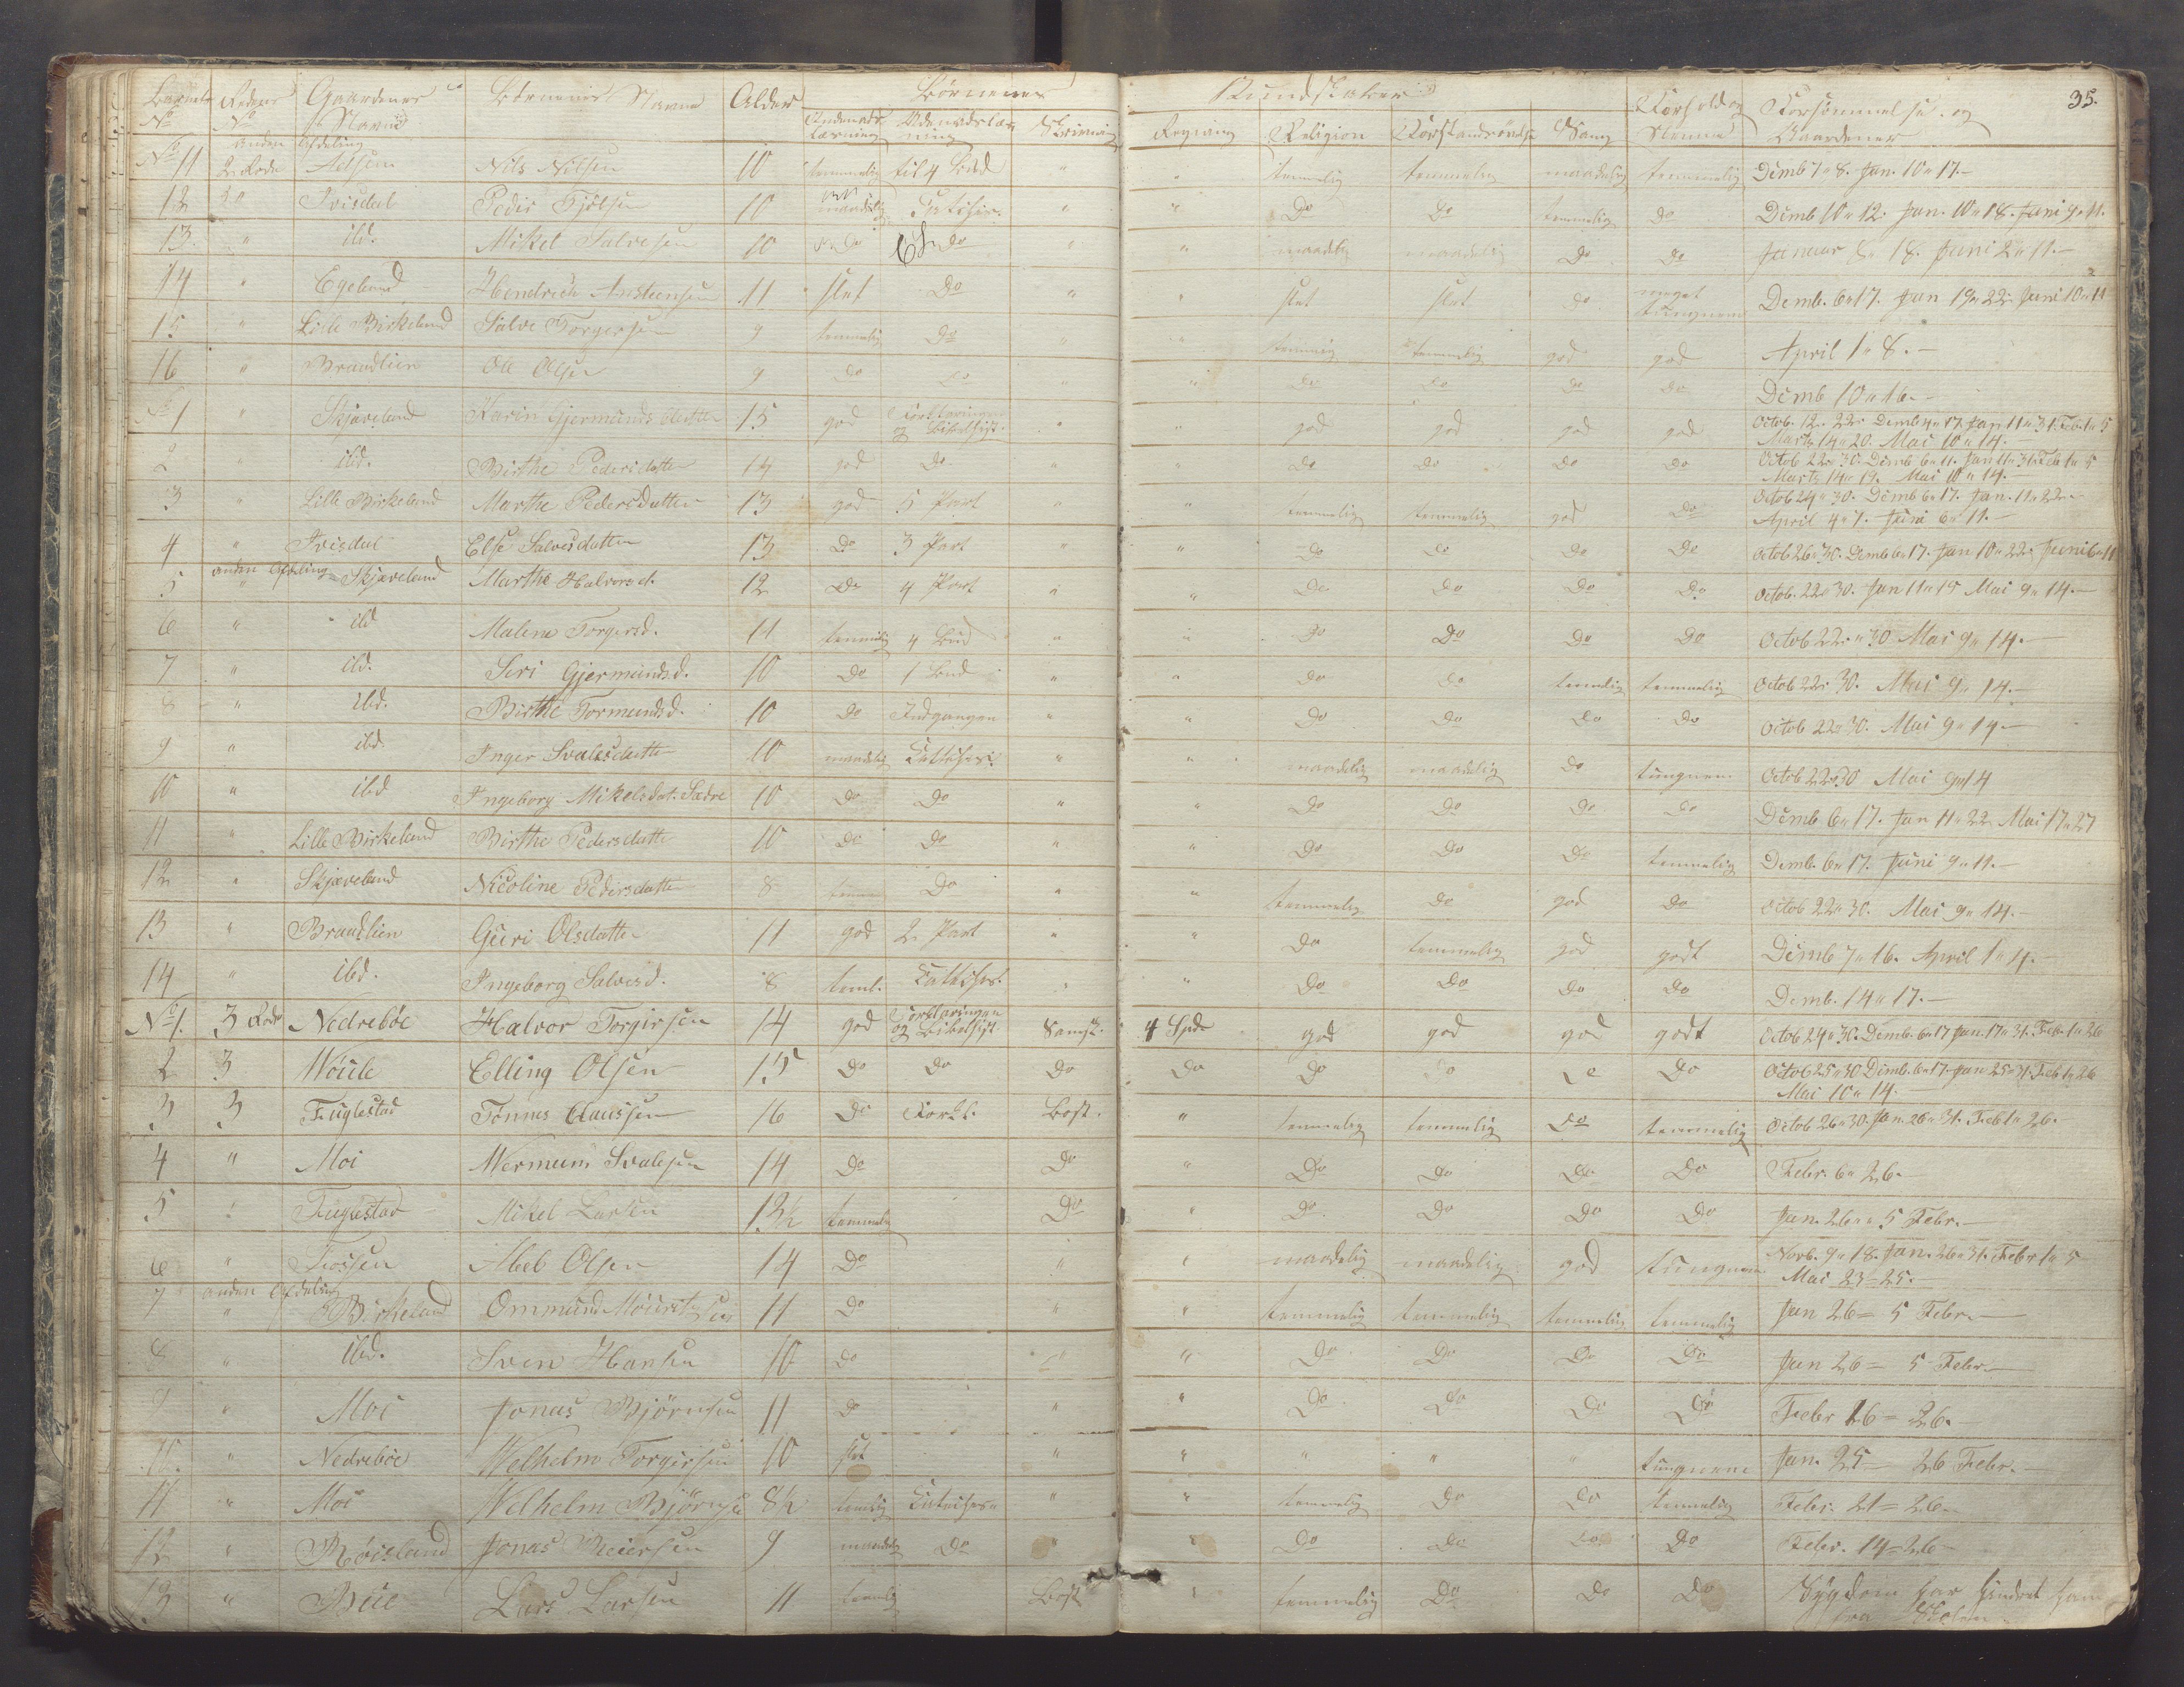 35.
Barnets Rodens Gaardenes Børnenes Navne Alder Børnenes Kundskaber Forhold og Forsömmelse og
No No Navne Indenads læsning Udenadslæsning Skrivning Regning Religion Forstandsøvelse Sang Nemme Gaardener
anden Afdeling
No 11 2 Rode Nils Nilsen 10 temmelig til 4 Bud " " temmelig temmelig maadelig temmelig Decmb 7 " 8. Jan. 10 " 17.
12 2 " Ivisdal Peder 10 maadelig " " Do Do temmelig Do Decmb 10 " 12. Jan. 10 " 18. Juni 9 " 11.
13. " ibd. Mikel Salvesen 10 Do Do " " maadelig maadelig Do Do Januar 8 " 18. Juni 2 " 11.
14 " Egeland Hendrich Anstensen 11 slet Do " " slet slet Do meget tungnem Decmb. 6 " 17. Jan 19 " 22. Juni 10 " 11
15 " Lille Birkeland Salve Torgersen 9 temmelig Do " " temmelig temmelig god god April 1 " 8.
16 " Braadlien Ole Olsen 9 Do Do " " Do Do Do Do Decmb 10 " 16.
No 1 " Skjæveland Karin Gjermunds datter 15 god Forklaringen og Bibelhist. " " god god god god Octob. 12 " 22. Decmb 4 " 17. Jan 11 " 31. Feb. 1 " 5
Marts 14 " 20. Mai 10 " 14.
2 " ibd. Birthe Pedersdatter 14 god Do " " Do Do Do Do Octob 22 " 30. Decmb 6 " 11. Jan 11 " 31. Feb 1 " 5
Marts 14 " 19. Mai 10 " 14.
3 " Lille Birkeland Marthe Pedersdatter 13 god 5 Part " " temmelig temmelig god Do Octob 24 " 30. Decmb 6 " 17. Jan. 11 " 22.
April 4 " 7. Juni 6 " 11.
4 " Ivisdal Else Salvesdatter 13 Do 3 Part " " Do Do Do Do Octob 26 " 30. Decmb 6 " 17. Jan 10 " 22. Juni 6 " 11
anden Afdeling
5 " Skjæveland Marthe Halvorsd. 12 Do 4 Part " " Do Do Do Do Octob. 22 " 30. Jan 11 " 15 Mai 9 " 14.
6 " ibd Malene Torgersd. 11 temmelig 4 Bud " " Do Do Do Do Octob 22 " 30 Mai 9 " 14.
7 " ibd. Seri Gjermundsd. 10 Do 1 Bud " " Do Do temmelig temmelig Octob 22 " 30. Mai 9 " 14.
8 " ibd. Birthe Tormundsd. 10 Do Indgangen " " Do Do Do Do Octob 22 " 30. Mai 9 " 14.
9 " ibd. Inger Svalesdatter 10 maadelig " " maadelig maadelig Do tungnem Octob 22 " 30 Mai 9 " 14
10 " ibd Ingeborg Mikelsdat. Sædre 10 Do Do " " Do Do Do Do Decmb 6 " 17. Jan 11 " 22. Mai 17 " 27
11 " Lille Birkeland Birthe Pedersdatter 10 Do Do " " Do Do Do temmelig Decmb. 6 " 17. Juni 9 " 11.
12 " Skjæveland Nicoline Pedersdatter 8 Do " " temmelig Do god Do Octob 22 " 30. Mai 9 " 14.
13 " Braadlien Guri Olsdatter 11 god 2 Part " " Do temmelig god godt Decmb 7 " 16. April 1 " 4.
14 " ibd. Ingeborg Salvesd. 8 teml. " " Do Do Do Do Decmb. 14 " 17.
No 1. 3 Rode Nedrebøe Halvor Torgersen 14 god Forklaringen og Bibelhist. Samsk. 4 Spd god god god godt Octob 24 " 30. Decmb. 6 " 17 Jan. 17 " 31. Feb. 1 " 26
2 3 Møiele Elling Olsen 15 Do Do Do Do Do Do Do Do Octob 25 " 30 Decmb. 6 " 17. Jan 25 " 31. Feb 1 " 26
Mai 10 " 14.
3 3 Fuglestad Tønnes Claussen 16 Do Forkl. Bogst. " temmelig temmelig Do temmelig Octob 26 " 30. Jan. 26 " 31. Feb 1 " 26.
4 " Moi Mermun Svalesen 14 Do Do " Do Do Do Do Febr. 6 " 26.
5 " Fuglestad Mikel Larsen 13½ temmelig Do " Do Do Do Do Jan. 26 " 5 Febr.
6 " Fossen Abel Olsen 14 Do " " maadelig maadelig god tungnem Novb. 9 " 18. Jan. 26 " 31. Febr 1 " 5
Mai 23 = 25.
anden Afdeling
7 " Birkeland Ommund Mouritsen 11 Do " " temmelig temmelig temmelig temmelig Jan 26 = 5 Febr.
8 " ibd. Sven Hansen 10 Do " " Do Do Do Do Jan 26 = 5 Febr.
9 " Moi Jonas Bjørnsen 11 Do " " Do Do Do Do Febr 16 = 26.
10. " Nedrebøe Welhelm Torgersen 10 slet " " " " " tungnemt Jan. 25 = 26 Febr.
11 " Moi Welhelm Bjørnsen 8½ temlig " " temmelig Do Do temmelig Febr. 21 = 26.
12 " Røisland Jonas Reiersen 9 maadelig Do " " Do Do Do Do Febr. 14 = 26
13 " Bue Lars Larsen 11 temlig Bogst " temmelig Do Do Do Sygdom har hindret ham
fra Skolen